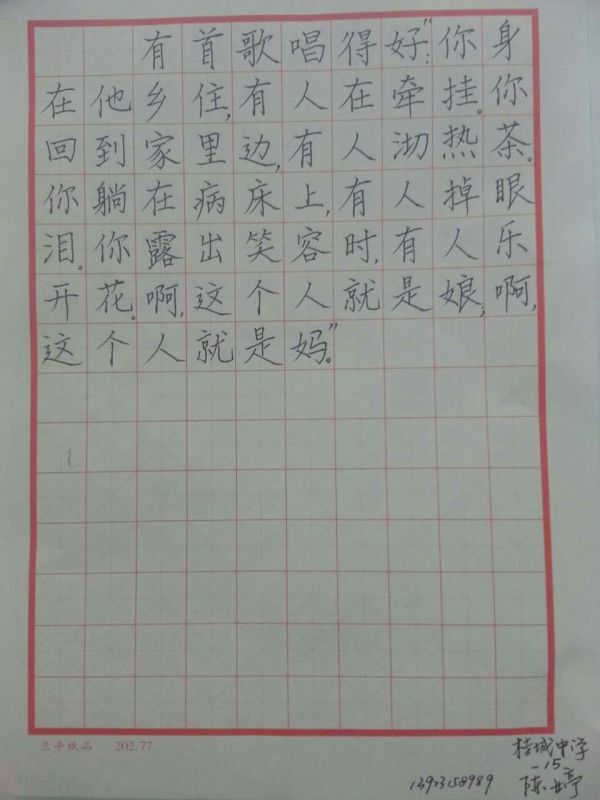 有首歌唱得好:“你身
在他乡住,有人在牵挂。你
回到家里边,有人沏热茶。
你躺在病床上,有人掉眼
泪。你露出笑容时,有人乐
开花。啊,这个人就是娘;啊,
这个人就是妈。”
兰亭纸品 202.77
桂城中学
-15-
13923158989
陈婷